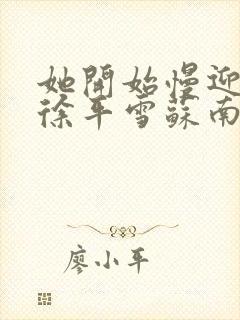 她開始慢迎
徐平雪蘇南
廖小平